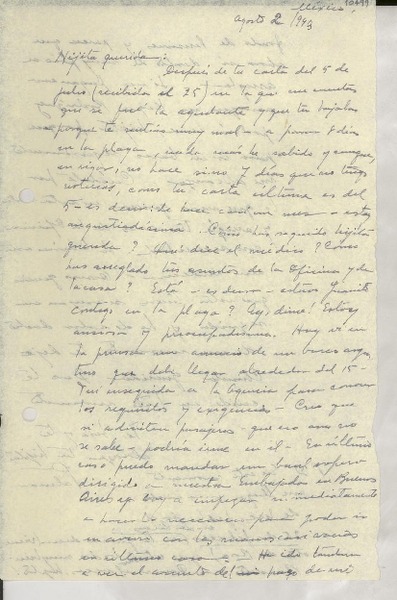 México,
10499
agosto 2/943
Hijita querida:
Después de tu carta del 5 de
julio (recibida el 25) en la que me cuentas
que se fué la ayudante y que tú bajabas
porque te sentías muy mal - a pasar 8 días
en la playa, nada más he sabido y aunque,
en rigor, no hace sino 7 días que no tengo
noticias, como tu carta última es del
5 - es decir: de hace casi un mes - estoy
angustiadísima. Cómo has seguido hijita
querida? Qué dice el médico? Cómo
has arreglado tus asuntos de la Oficina y de
la casa? Está - es deseo - estuvo Juanito
contigo en la playa? Ay, dime! Estoy
ansiosa y preocupadísima. Hoy vi en
la prensa un anuncio de un barco argen
tino que debe llegar alrededor del 15 -
Fuí enseguida a la Agencia para conocer
los requisitos y exigencias - Creo que
si admiten pasajeros - que eso aun no
se sabe - podría irme en él - En último
caso puedo mandar un baul ropero
dirigido a nuestra Embajada en Buenos
Aires y voy a empezar inmediatamente
a hacer lo necesario para poder
en último caso - He ido también
a ver el asunto del pago de mi